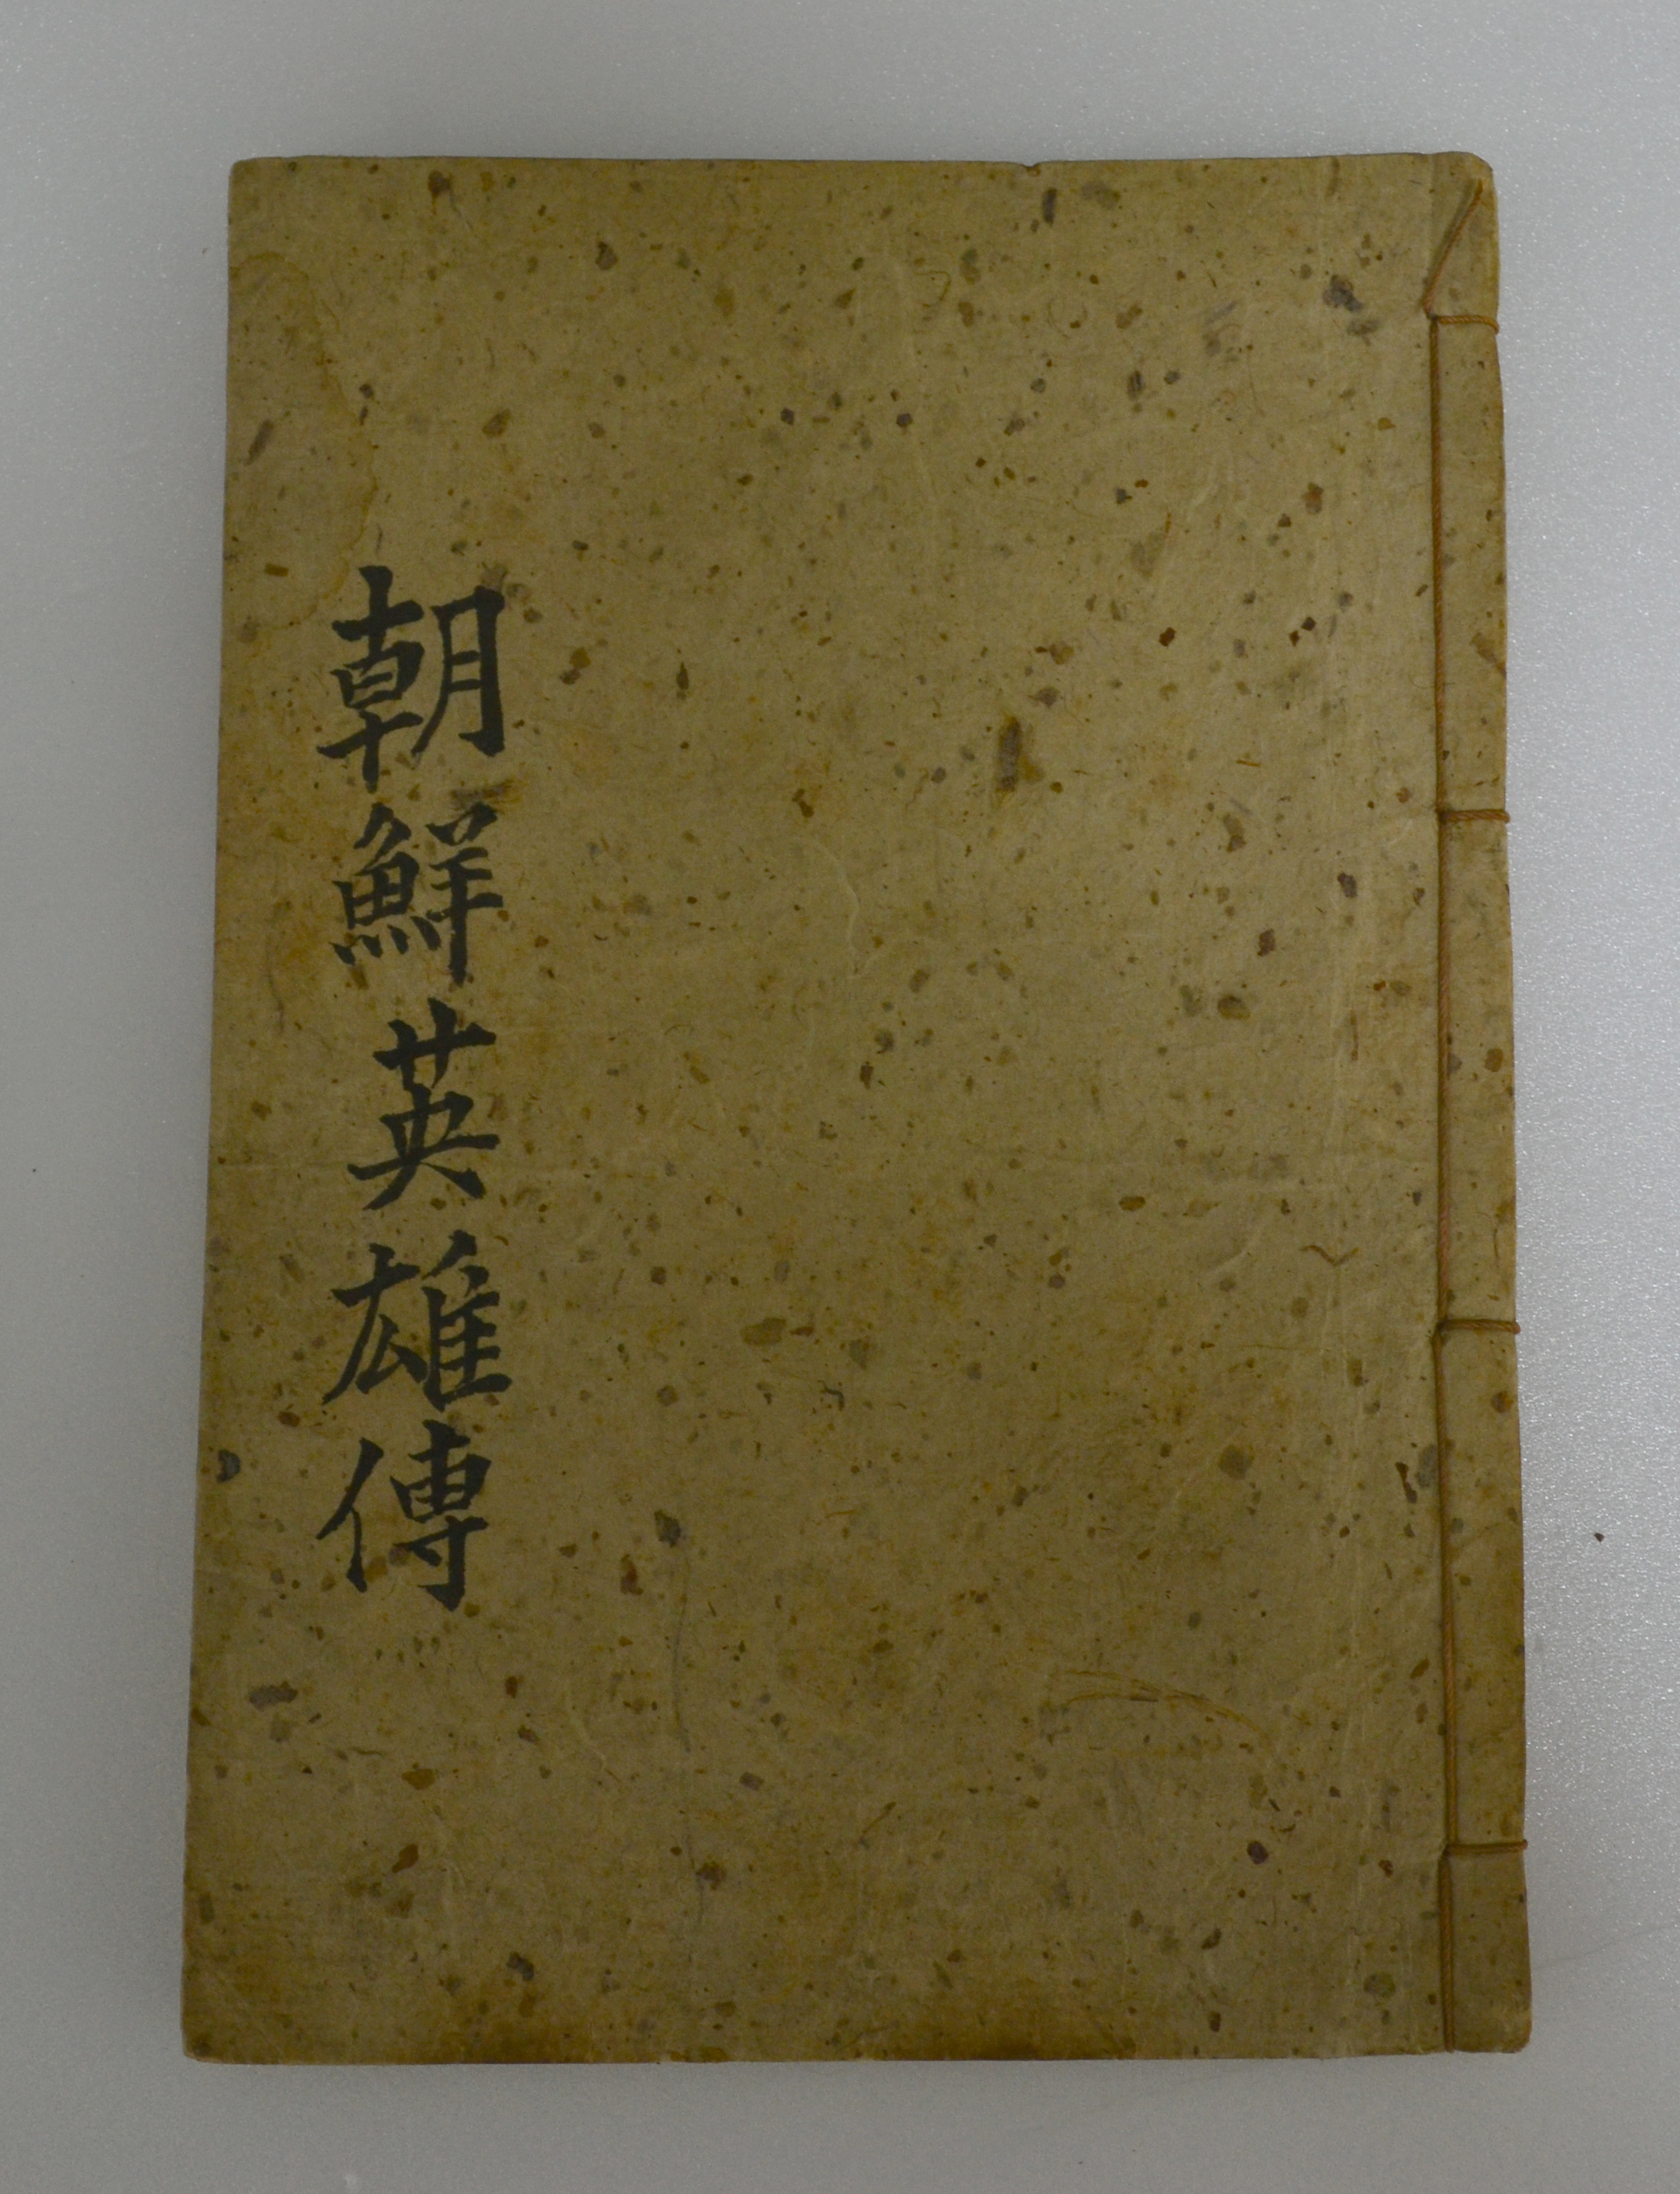 朝鮮英雄傳